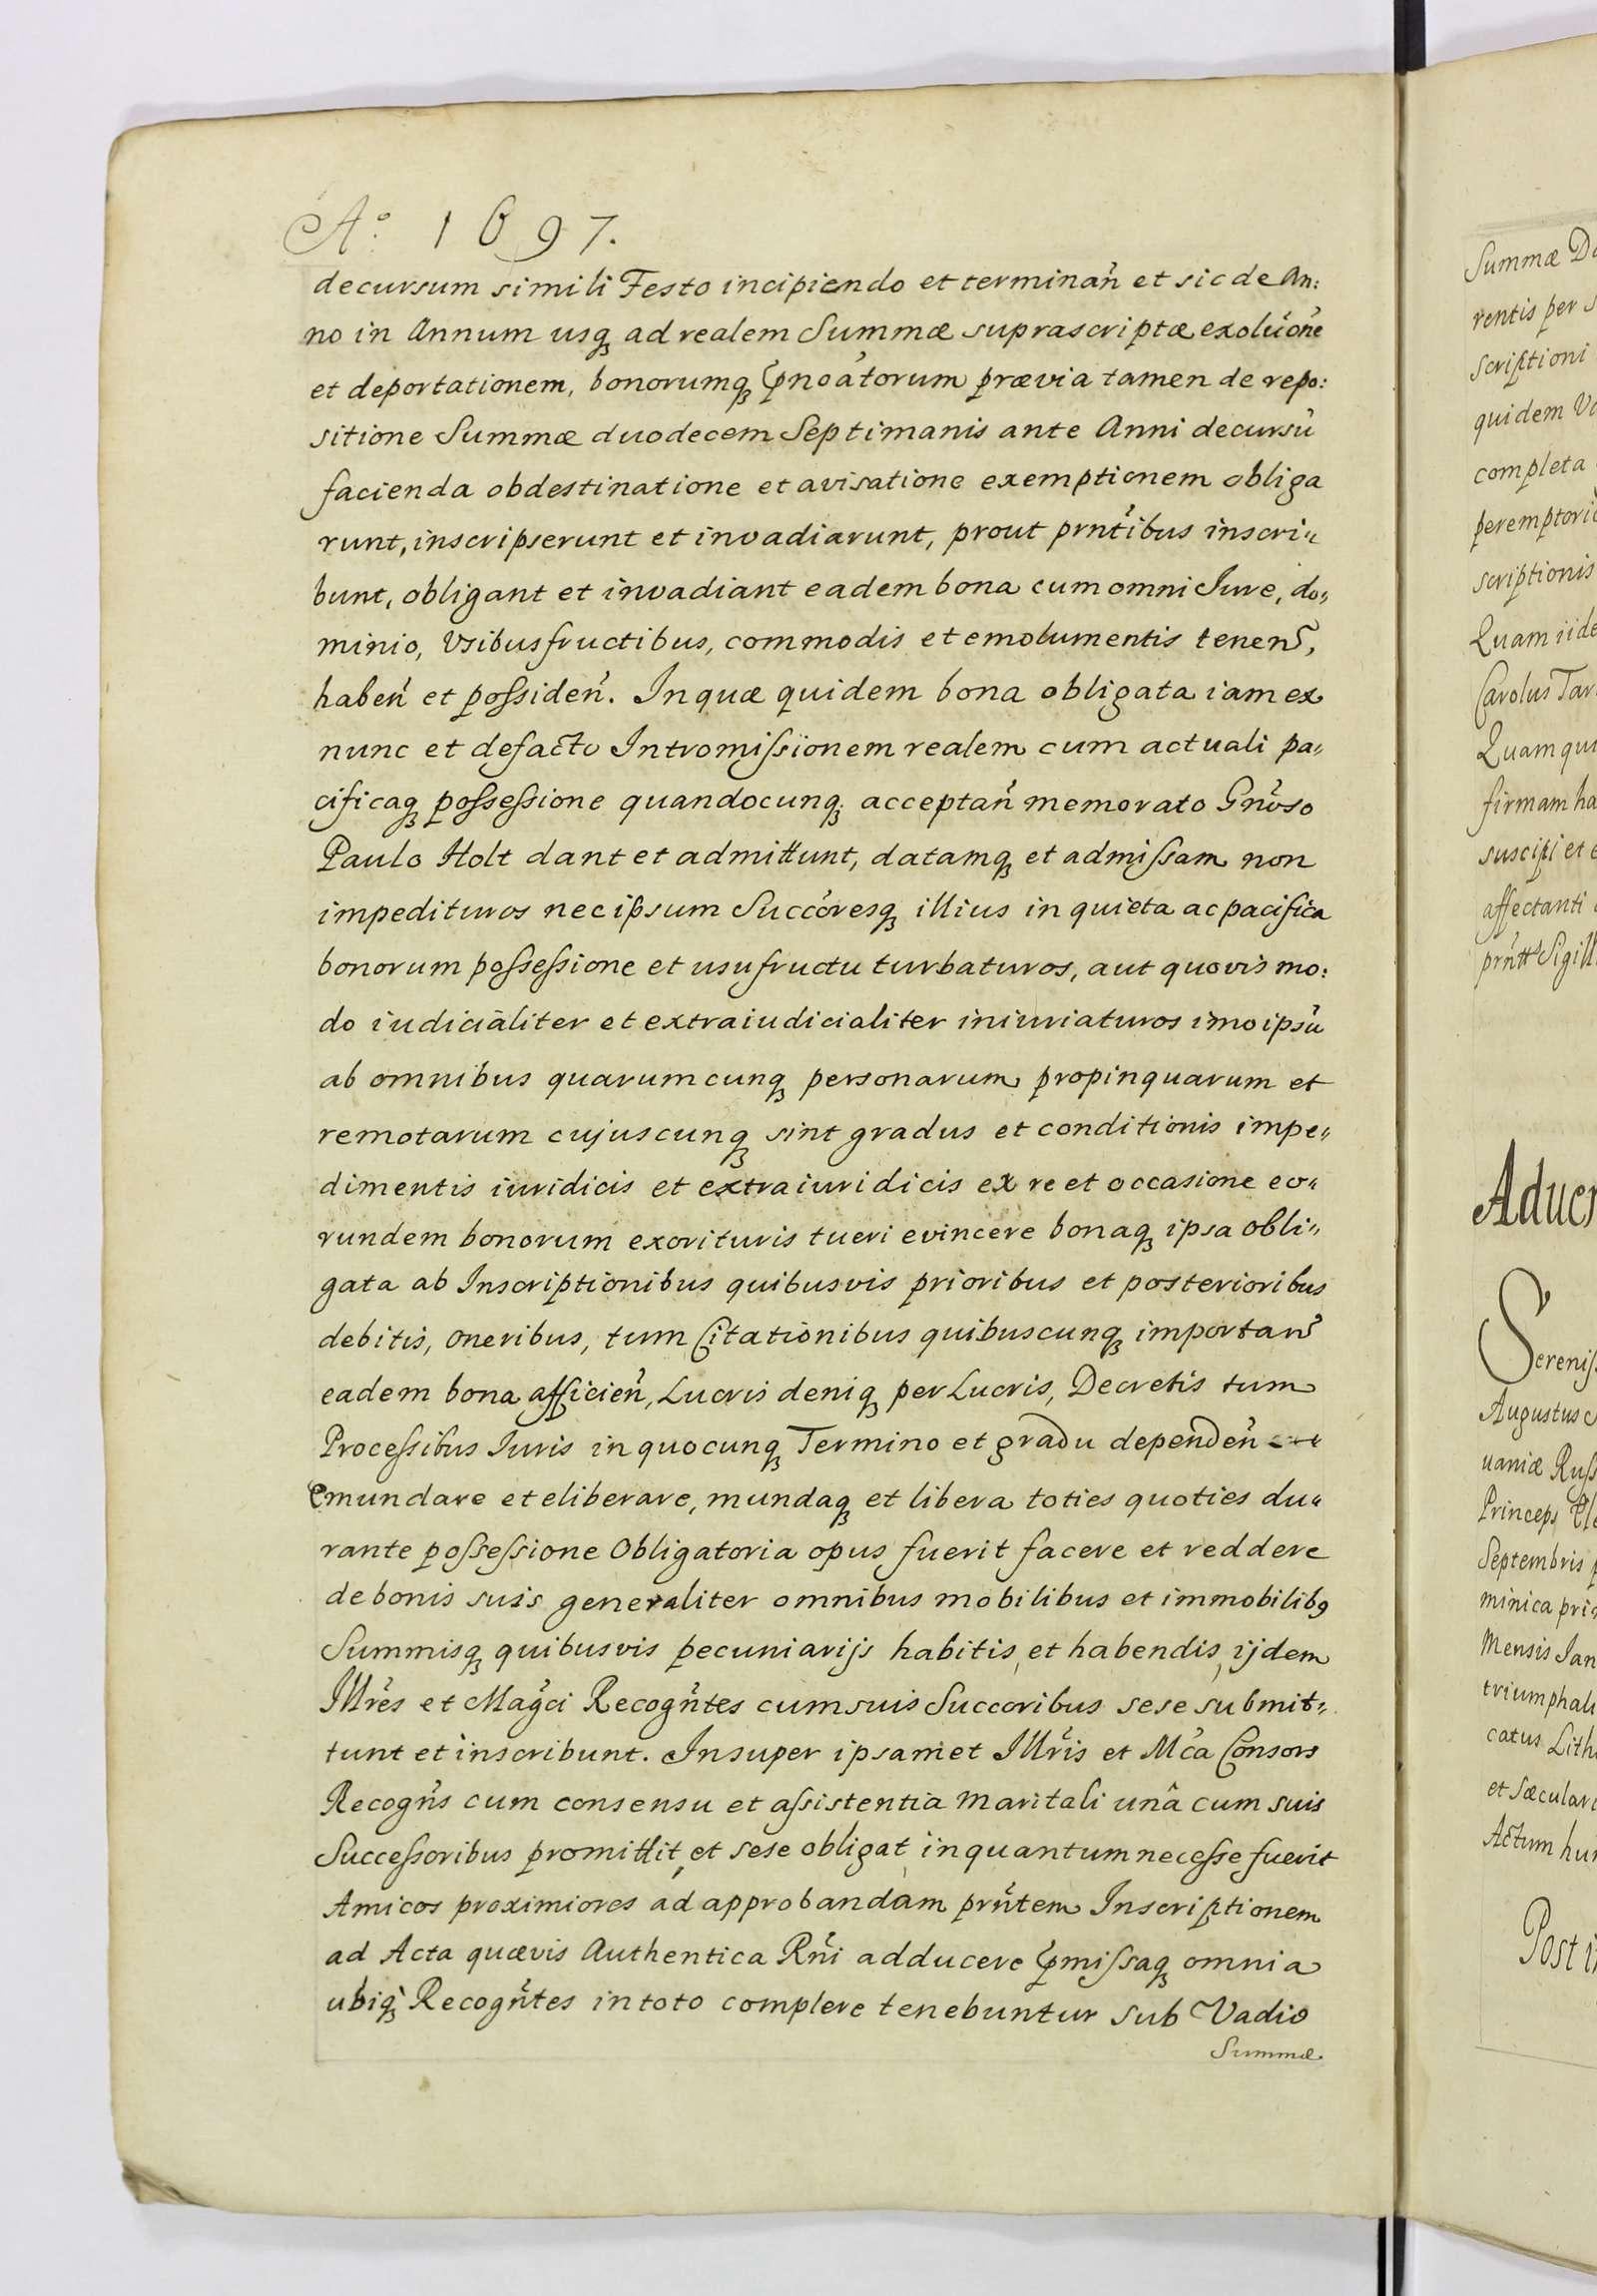 Aº: 1697.
decursum simili Festo incipiendo et terminan̄ et sic de An:
no in Annum usq₃ ad realem Summæ suprascriptæ exolūone
et deportationem, bonorumq₃ p̄noātorum prævia tamen de repo:
sitione Summæ duodecem Septimanis ante Anni decursū
facienda obdestinatione et avisatione exemptionem obliga
runt, inscripserunt et invadiarunt, prout prn̄tibus inscri„
bunt, obligant et invadiant eadem bona cum omni Iure, do„
minio, Usibusfructibus, commodis et emolumentis tenen̄,
haben̄ et poſsiden̄. In quæ quidem bona obligata iam ex
nunc et defacto Intromiſsionem realem cum actuali pa„
cificaq₃ poſseſsione quandocunq₃ acceptan̄ memorato Gn̄oso
Paulo Holt dant et admittunt, datamq₃ et admiſsam non
impedituros nec ipsum Succōresq₃ illius in quieta ac pacifica
bonorum poſseſsione et usufructu turbaturos, aut quovis mo:
do iudicialiter et extraiudicialiter iniuriaturos imo ipsū
ab omnibus quarumcunq₃ personarum propinquarum et
remotarum cujuscunq₃ sint gradus et conditionis impe„
dimentis iuridicis et extraiuridicis ex re et occasione eo„
rundem bonorum exorituris tueri evincere bonaq₃ ipsa obli„
gata ab Inscriptionibus quibusvis prioribus et posterioribus
debitis, oneribus, tum Citationibus quibuscunq₃ importan̄
eadem bona afficien̄, Lucris deniq₃ per Lucris, Decretis tum
Proceſsibus Iuris in quocunq₃ Termino et gradu dependen̄
emundare et eliberare, mundaq₃ et libera toties quoties du„
rante poſseſsione Obligatoria opus fuerit facere et reddere
de bonis suis generaliter omnibus mobilibus et immobilibꝰ
Summisq₃ quibusvis pecuniarijs habitis et habendis, ijdem
Illr̄es et Mag̃ci Recogn̄tes cum suis Succoribus sese submit„
tunt et inscribunt. Insuper ipsamet Illr̄is et Mc̄a Consors
Recogn̄s cum consensu et aſsistentia maritali unâ cum suis
Succeſsoribus promittit, et sese obligat inquantum neceſse fuerit
Amicos proximiores ad approbandam prn̄tem Inscriptionem
ad Acta quævis Authentica Rn̄i adducere p̄miſsaq₃ omnia
ubiq₃ Recogn̄tes in toto complere tenebuntur sub Vadio
Summæ
Summæ
rentis per
scriptioni
quidem
completa
scriptionis
Carolus
Quam
firmam
suscipi et
affectanti
Augustus
uaniæ
Princeps
Septembris
minica
Mensis
triumphali
catus
Actum
Post